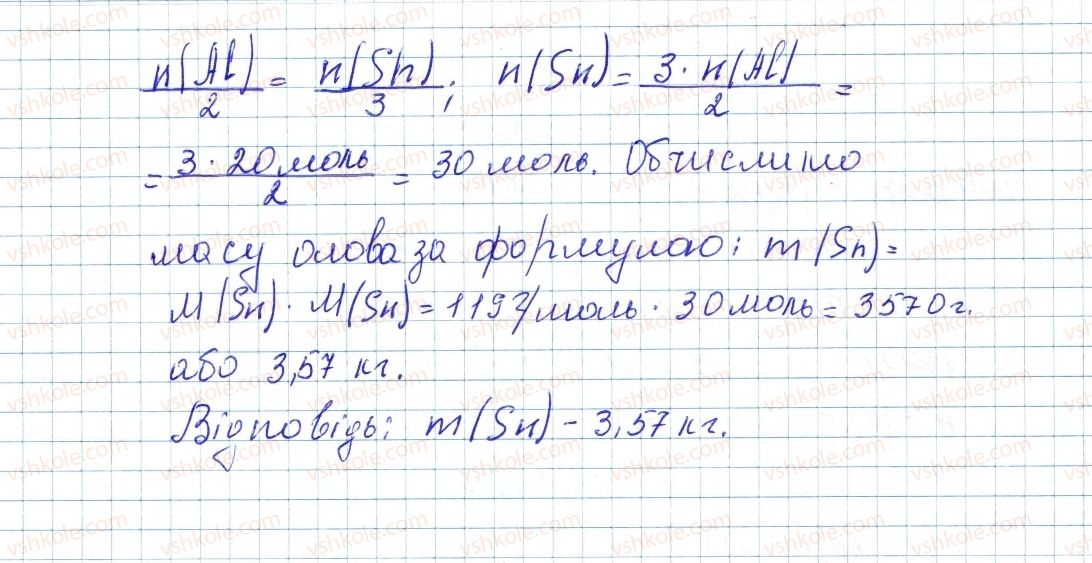 n(Al)/2 = n(Sn)/3; n(Sn) = 3·n(Al)/2 =
= 3·20 моль/2 = 30 моль. Обчислимо
масу олова за формулою: m(Sn)=
M(Sn)·M(Sn)=119г/моль·30моль=3570г.
або 3,57 кг.
Відповідь: m(Sn) - 3,57кг.